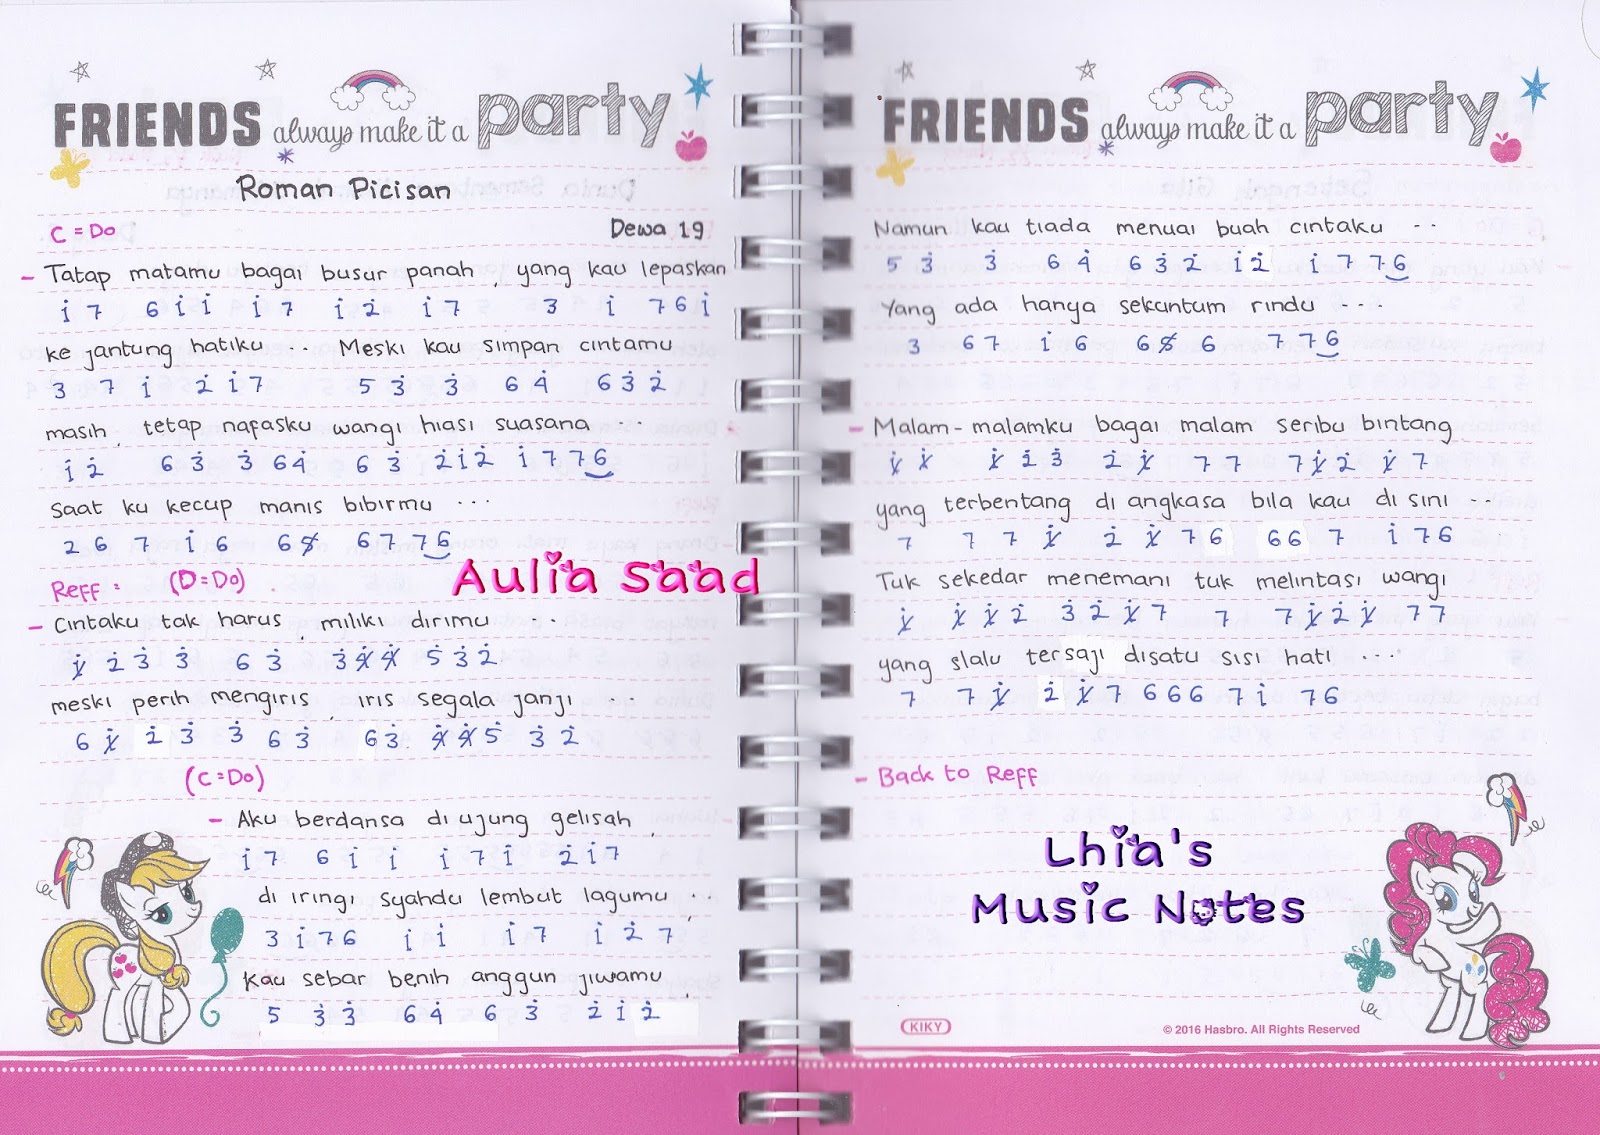 FRIENDS always make it a party
Roman Picisan
C = Do
Dewa 19
- Tatap matamu bagai busur panah, yang kau lepaskan
1̇ 7 6 1̇ 1̇ 1̇ 7 1̇ 2̇ 1̇ 7 3 1̇ 7 6 1̇
ke jantung hatiku .. Meski kau simpan cintamu
3 7 1̇ 2̇ 1̇ 7 5 3̇ 3̇ 6 4̇ 6 3̇ 2̇
masih, tetap nafasku wangi hiasi suasana ...
1̇ 2̇ 6 3̇ 3̇ 6 4̇ 6 3̇ 2̇ 1̇ 2̇ 1̇ 7 7 6
saat ku kecup manis bibirmu ...
2 6 7 1̇ 6 6 5̸ 6 7 7 6
Reff : (D = Do)
- Cintaku tak harus, miliki dirimu ...
1̸̇ 2̇ 3̇ 3̇ 6 3̇ 3̇ 4̸̇ 4̸̇ 5̇ 3̇ 2̇
meski perih mengiris, iris segala janji ..
6 1̸̇ 2̇ 3̇ 3̇ 6 3̇ 6 3̇ 4̸̇ 4̸̇ 5̇ 3̇ 2̇
(C = Do)
- Aku berdansa di ujung gelisah,
1̇ 7 6 1̇ 1̇ 1̇ 7 1̇ 2̇ 1̇ 7
di iringi syahdu lembut lagumu, ..
3 1̇ 7 6 1̇ 1̇ 1̇ 7 1̇ 2̇ 7
kau sebar benih anggun jiwamu,
5 3̇ 3̇ 6 4̇ 6 3̇ 2̇ 1̇ 2̇
Aulia Saad
FRIENDS always make it a party
Namun kau tiada menuai buah cintaku ..
5 3̇ 3̇ 6 4̇ 6 3̇ 2̇ 1̇ 2̇ 1̇ 7 7 6
Yang ada hanya sekuntum rindu ...
3 6 7 1̇ 6 6 5̸ 6 7 7 6
- Malam-malamku bagai malam seribu bintang
1̸̇ 1̸̇ 1̸̇ 2̇ 3̇ 2̇ 1̸̇ 7 7 7 1̸̇ 2̇ 1̸̇ 7
yang terbentang di angkasa bila kau di sini ..
7 7 7 1̸̇ 2̇ 1̸̇ 7 6 6 6 7 1̇ 7 6
Tuk sekedar menemani tuk melintasi wangi
1̸̇ 1̸̇ 1̸̇ 2̇ 3̇ 2̇ 1̸̇ 7 7 7 1̸̇ 2̇ 1̸̇ 7 7
yang slalu tersaji disatu sisi hati ...
7 7 1̸̇ 2̇ 1̸̇ 7 6 6 6 7 1̇ 7 6
- Back to Reff
Lhia's
Music Notes
KIKY
© 2016 Hasbro. All Rights Reserved